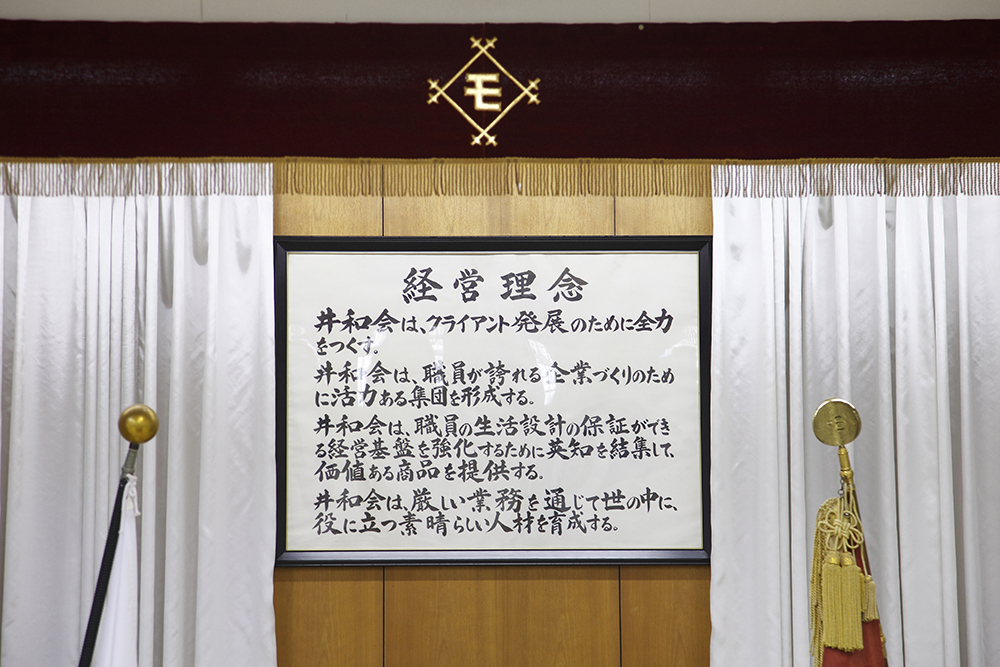 モ
経営理念
井和会は、クライアント発展のために全力
をつくす。
井和会は、職員が誇れる企業づくりのため
に活力ある集団を形成する。
井和会は、職員の生活設計の保証ができ
る経営基盤を強化するために英知を結集して、
価値ある商品を提供する。
井和会は、厳しい業務を通じて世の中に、
役に立つ素晴らしい人材を育成する。